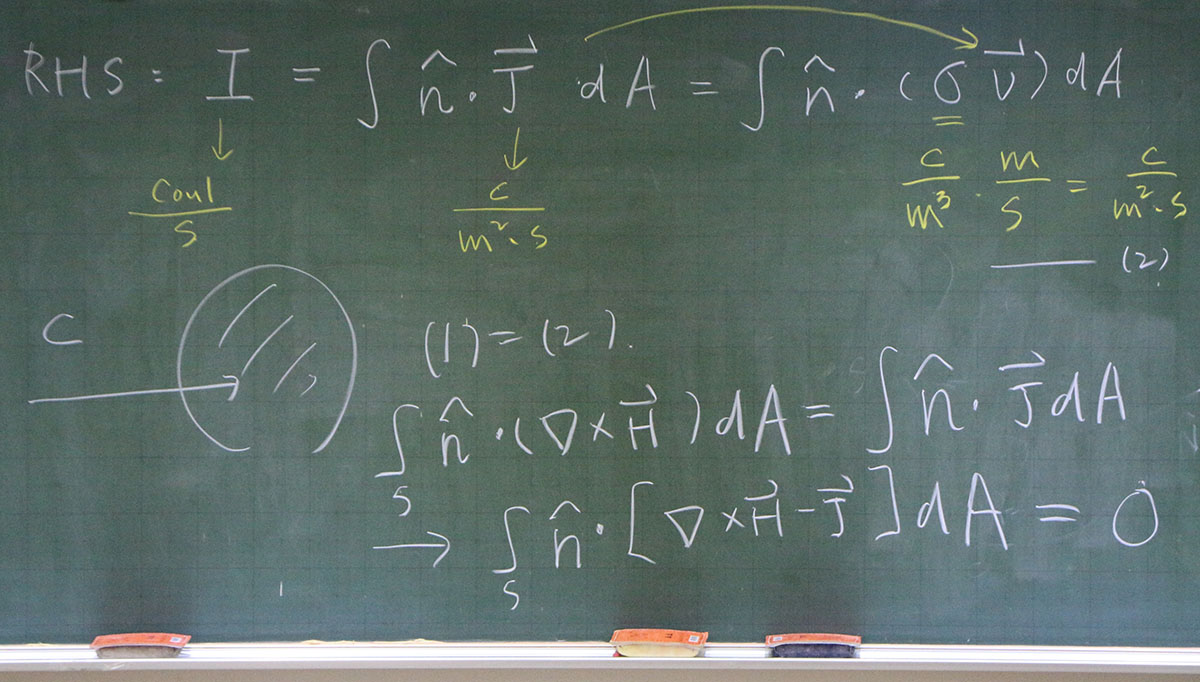 RHS: I = ∫ n̂ · J⃗ dA = ∫ n̂ · (σ v⃗) dA
Coul/s
c/m²·s
c/m³ · m/s = c/m²·s
(2)
C
(1) = (2).
∫_S n̂ · (∇ × H⃗) dA = ∫ n̂ · J⃗ dA
→ ∫_S n̂ · [∇ × H⃗ − J⃗] dA = 0